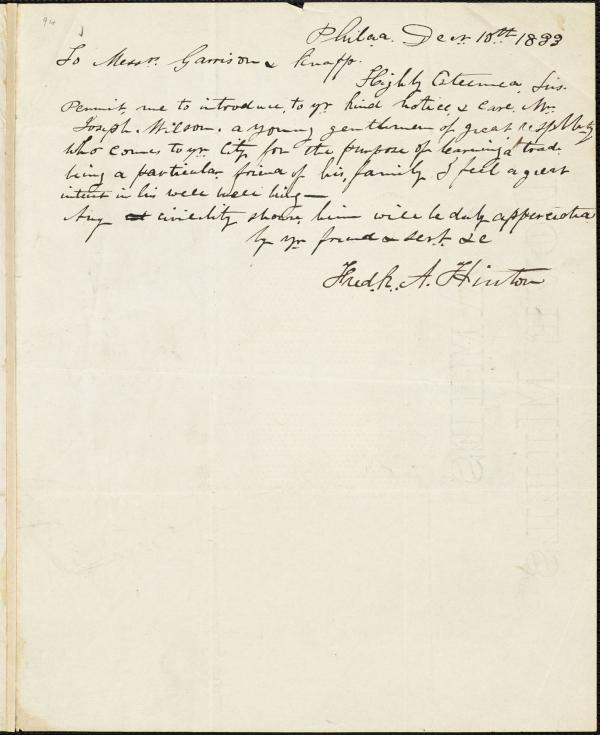 94
Philaa. Decr. 10th 1833
To Messr. Garrison & Knapp.
Highly Esteemed Sirs.
Permit, me to introduce, to yr kind notice, & care, Mr.
Joseph. Wilson. a young gentlemen of great respbbty
who comes to yr. City, for the purpose of learning a trade
being a particular friend of his, family I feel a great
intrest in his well well being—
Any civility shown, him will be duly appreciated
by yr friend & sert. &c
Fredk. A. Hinton